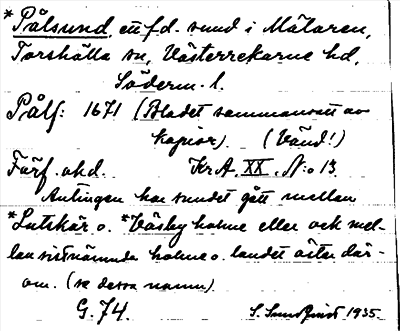 *Pålsund, ett f.d. sund i Mälaren,
Torshälla sn, Västerrekarne hd,
Söderm. l.
Pålß: 1671 (Bladet sammansatt av
kopior) (Vänd!)
Förf. okd. Kr.A. XX. N:o 13
Antingen har sundet gått mellan
*Lutskär o. *Väsby holme eller ock mel-
lan sistnämnda holme o. landet öster där-
om. (se dessa namn)
G. 74. S. Sundqvist 1935.